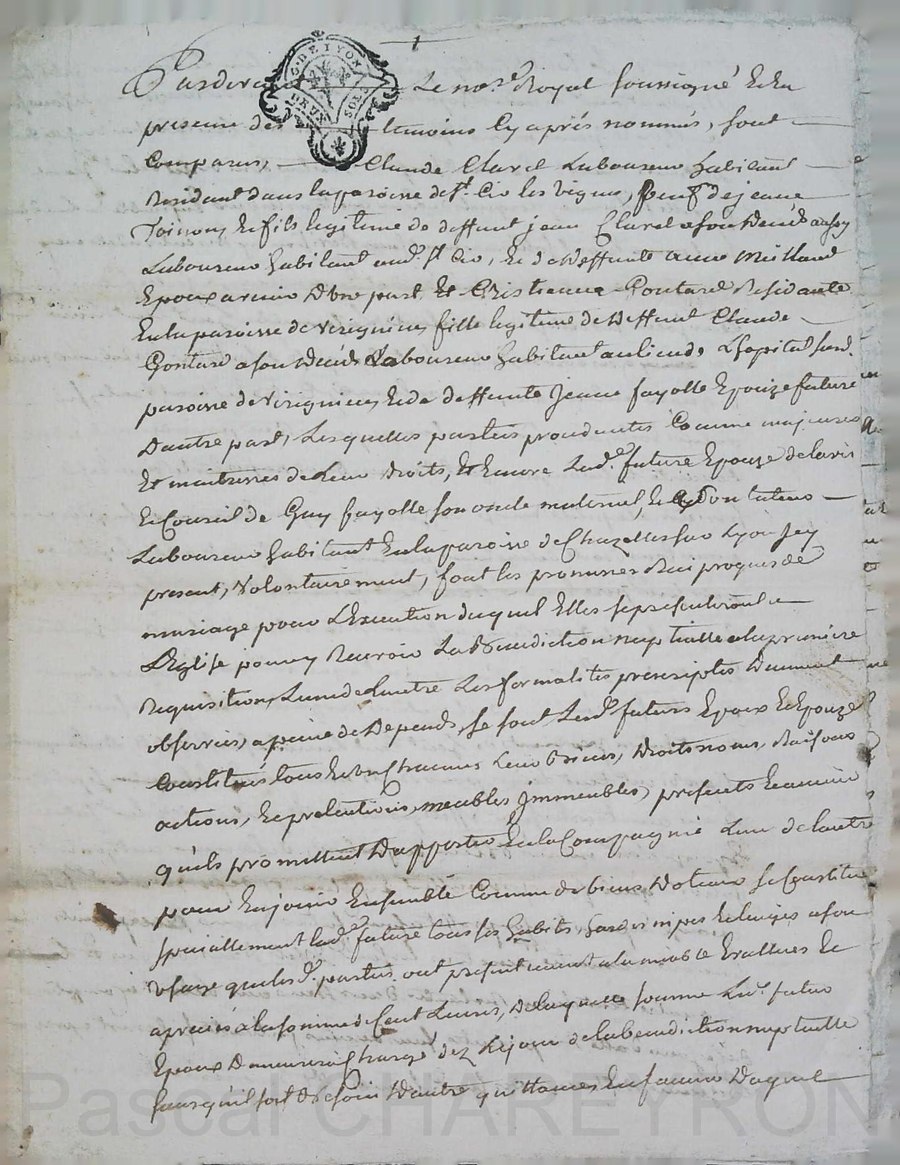 1
G. DE LYON
DEUX SOLS
Pardevant Le no.re Royal soussigné Et En
presence des temoins Cy aprés nommés, sont
Comparus, Claude Clavel Laboureur habitant
Residant dans la paroisse de s.t Cir les vignes, veuf de jeane
Toinon, Et fils legitime de deffunt jean Clavel a son decéds aussy
Laboureur habitant aud.t s.t Cir, Et de deffunte anne
Epoux avenir D'une part, Et Cristienne Gontard Residante
En la paroisse de virignieu, fille legitime de deffunt Claude
Gontard a son decéds Laboureur habitant au lieu de L'hopital
paroisse de virignieu, Et de deffunte Jeane fayolle Epouze future
D'autre part, Lesquelles parties procedantes Comme majeures
Et maitresses de Leur Droits, Et Encore Lad.e future Epouze de l'avis
Et Conseil de Guy fayolle son oncle maternel, Et
Laboureur habitant En la paroisse de Chazelles sur Lyon Jcy
present, volontairement, font les promesses Reciproques de
mariage pour L'Execution duquel Elles se presenteront a
L'Eglise pour y Recevoir La Benediction nuptialle a la premiere
Requisition, L'un de L'autre Les formalités prescriptes Duement
observées, a peine de Depends, se sont Lesd.s futurs Epoux Et Epouze
Constitués tous Et un Chacuns Leur Biens, Droits noms, Raisons
actions, Et pretentions, meubles Jmmeubles, presents Et avenir
qu'ils promettent D'apporter En la Compagnie L'un de l'autre
pour En jouir Ensemble Comme de biens Dotaux se Constitue
specialement Lad.e future tous ses habits, hardes nipes Et linges a son
usage que les d. parties ont presentement a l'amiable Evallues Et
apreciés a la somme de Cent Livres, De laquelle somme Led.t futur
Epoux Demeurera Chargé dez Le jour de la benediction nuptialle
sans qu'il soit Besoin D'autre quittances En faveur Duquel
Pascal CHAREYRON